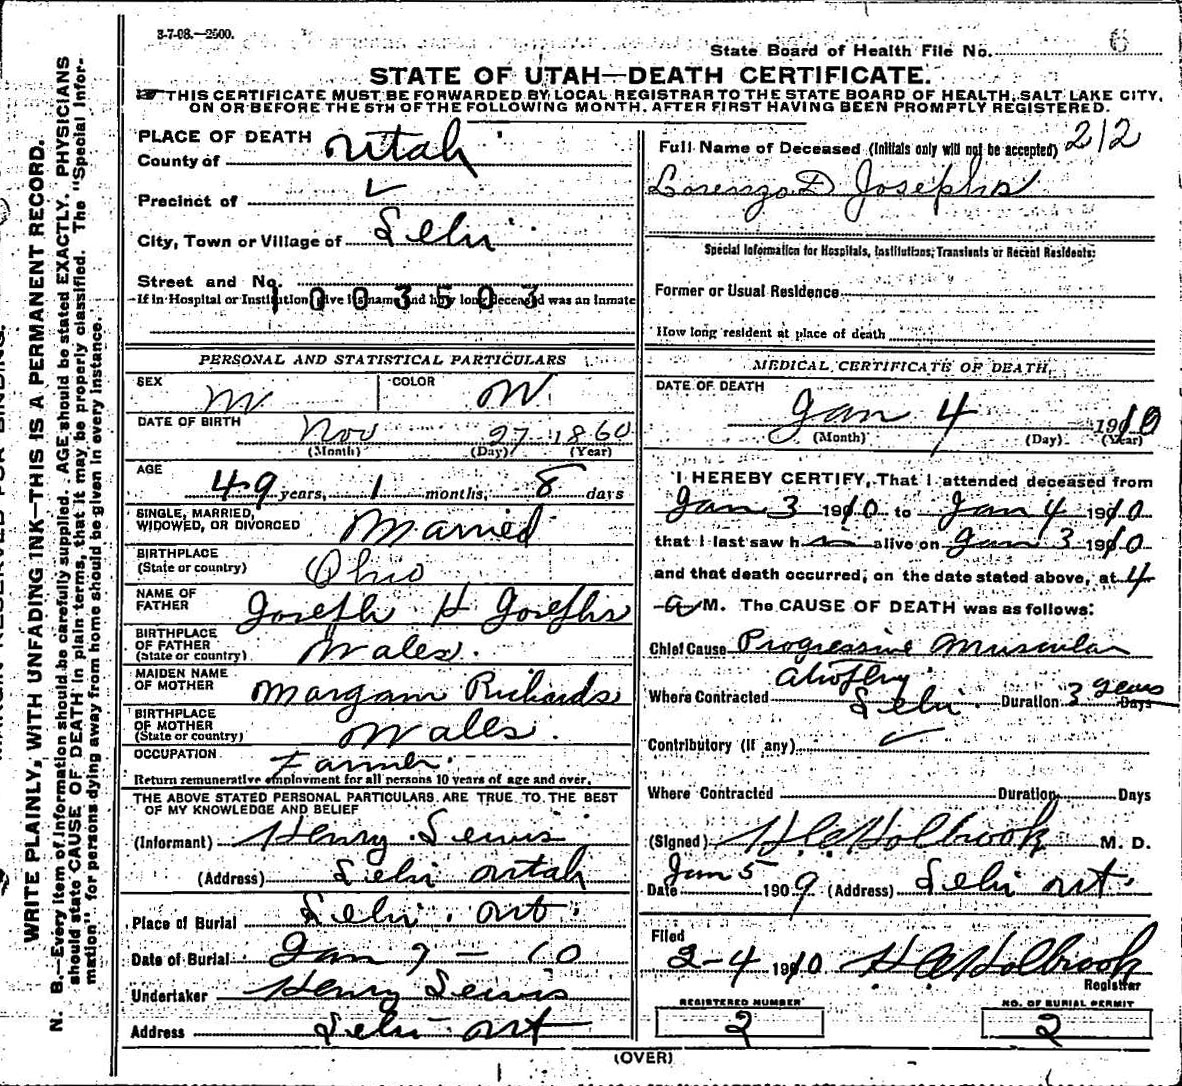 3-7-08.—2500.
State Board of Health File No. 6
STATE OF UTAH—DEATH CERTIFICATE.
THIS CERTIFICATE MUST BE FORWARDED BY LOCAL REGISTRAR TO THE STATE BOARD OF HEALTH, SALT LAKE CITY,
ON OR BEFORE THE 5TH OF THE FOLLOWING MONTH, AFTER FIRST HAVING BEEN PROMPTLY REGISTERED.
PLACE OF DEATH
County of Utah
Precinct of
City, Town or Village of Lehi
Street and No.
1003503
If in Hospital or Institution give its name and how long deceased was an inmate
PERSONAL AND STATISTICAL PARTICULARS
SEX M COLOR W
DATE OF BIRTH Nov 27 1860
(Month) (Day) (Year)
AGE 49 years, 1 months, 8 days
SINGLE, MARRIED,
WIDOWED, OR DIVORCED Married
BIRTHPLACE
(State or country) Ohio
NAME OF
FATHER Joseph H Josephs
BIRTHPLACE
OF FATHER
(State or country) Wales.
MAIDEN NAME
OF MOTHER Richards
BIRTHPLACE
OF MOTHER
(State or country) Wales.
OCCUPATION Farmer.
Return remunerative employment for all persons 10 years of age and over.
THE ABOVE STATED PERSONAL PARTICULARS ARE TRUE TO THE BEST
OF MY KNOWLEDGE AND BELIEF
(Informant) Henry Lewis
(Address) Lehi Utah
Place of Burial Lehi. Ut.
Date of Burial Jan 7 - 10
Undertaker Henry Lewis
Address Lehi Ut
Full Name of Deceased (Initials only will not be accepted) 212
Lorenzo D Josephs
Special Information for Hospitals, Institutions, Transients or Recent Residents:
Former or Usual Residence
How long resident at place of death
MEDICAL CERTIFICATE OF DEATH
DATE OF DEATH
Jan 4 1910
(Month) (Day) (Year)
I HEREBY CERTIFY, That I attended deceased from
Jan 3 1910 to Jan 4 1910
that I last saw h alive on Jan 3 1910
and that death occurred, on the date stated above, at 4
a M. The CAUSE OF DEATH was as follows:
Chief Cause Progressive Muscular
Atrophy
Where Contracted Lehi. Duration 3 years Days
Contributory (if any)
Where Contracted Duration Days
(Signed) H. A. Holbrook M. D.
Date Jan 5 1909 (Address) Lehi Ut.
Filed
2-4 1910 H. A. Holbrook
Registrar
REGISTERED NUMBER
2
NO. OF BURIAL PERMIT
2
(OVER)
WRITE PLAINLY, WITH UNFADING INK—THIS IS A PERMANENT RECORD.
N. B.—Every item of information should be carefully supplied. AGE should be stated EXACTLY. PHYSICIANS
should state CAUSE OF DEATH in plain terms, that it may be properly classified. The "Special Infor-
mation" for persons dying away from home should be given in every instance.